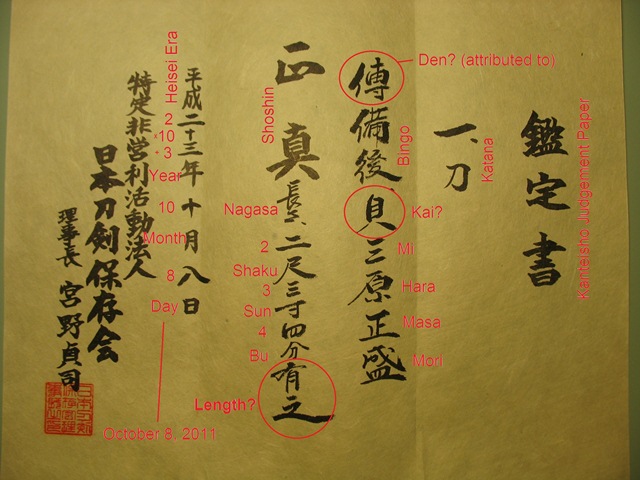 鑑定書
Kanteisho Judgement Paper
一、刀
Katana
傳備後貝三原正盛
Den? (attributed to)
Bingo
Kai?
Mi
Hara
Masa
Mori
正真 長サ二尺三寸四分有之
Shoshin
Nagasa
2
Shaku
3
Sun
4
Bu
Length?
平成二十三年十月八日
Heisei Era
2
×10
3
Year
10
Month
8
Day
October 8, 2011
特定非営利活動法人
日本刀剣保存会
理事長 宮野貞司